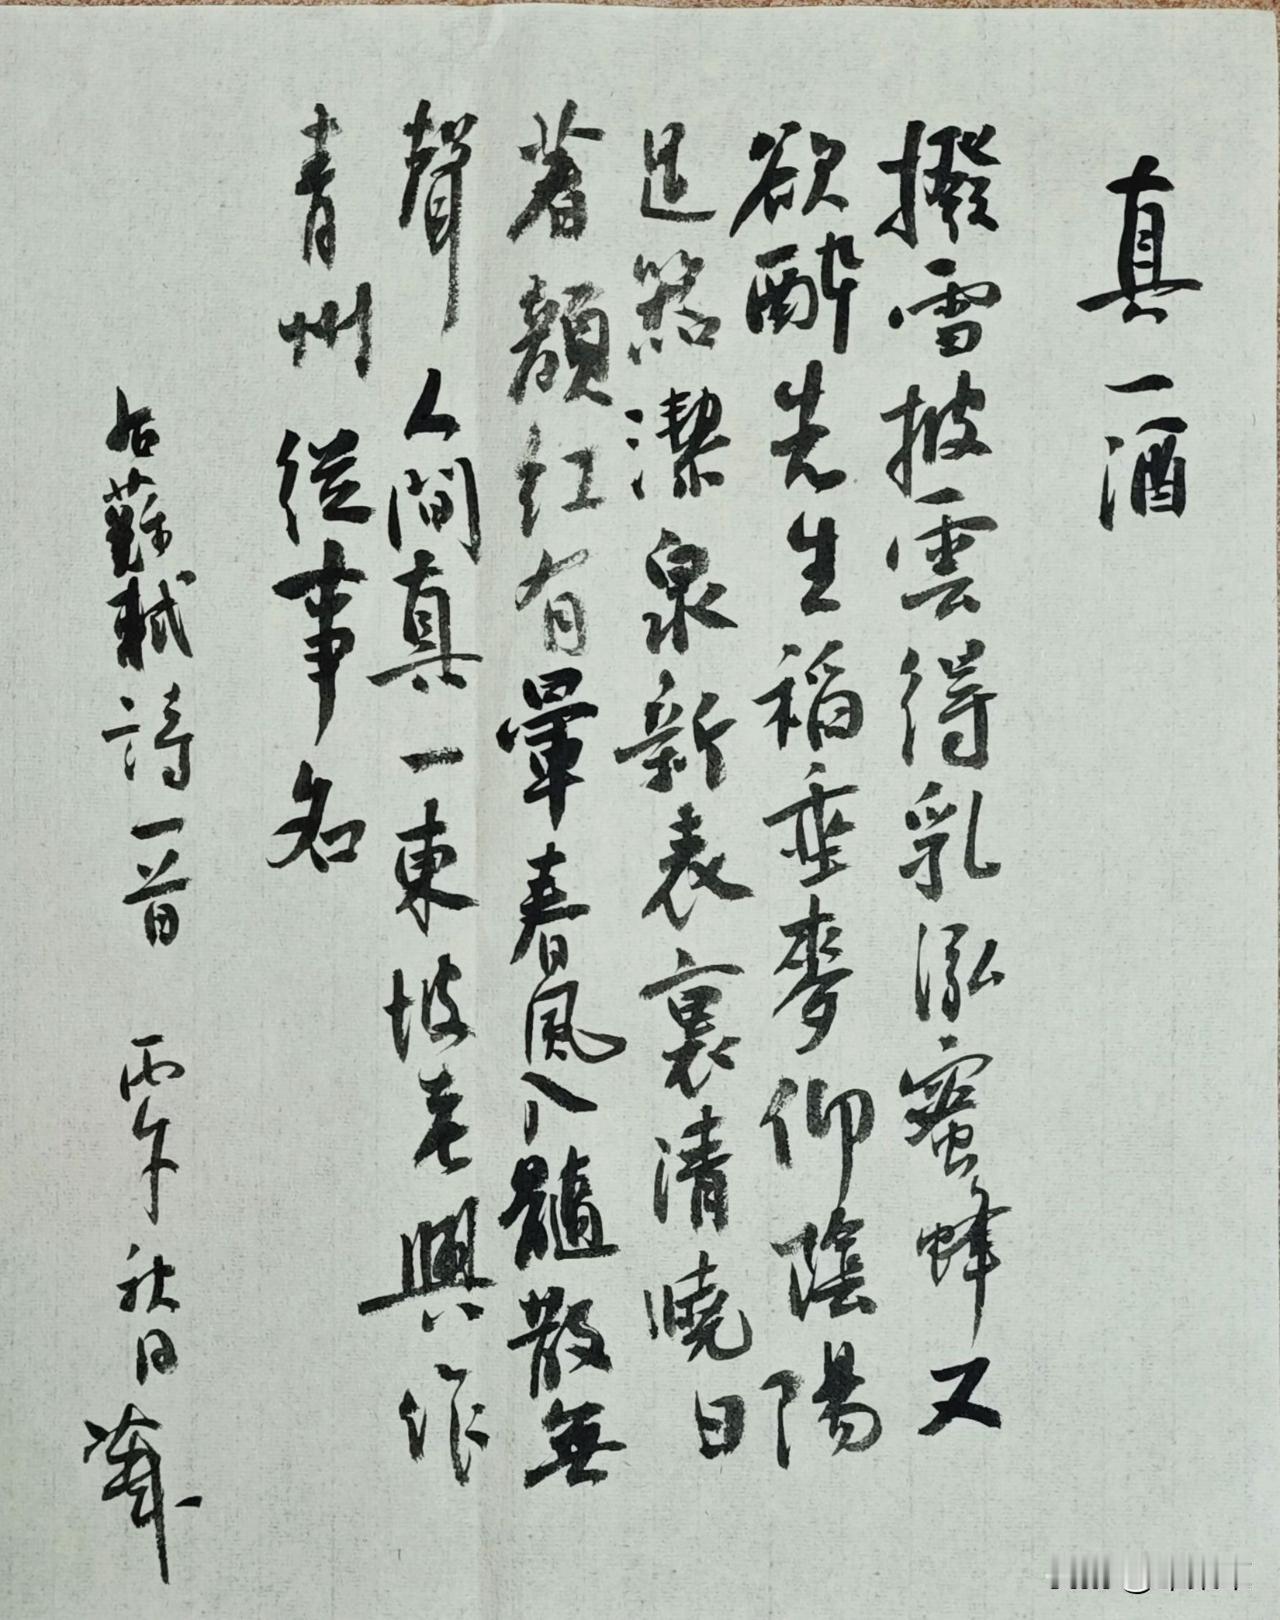 真一酒
撥雪披雲得乳泓蜜蜂又
欲醉先生稻垂麥仰陰陽
足器潔泉新表裏清曉日
著顏紅有暈春風入髓散無
聲人間真一東坡老興作
青州從事名
右蘇軾詩一首 丙午秋日